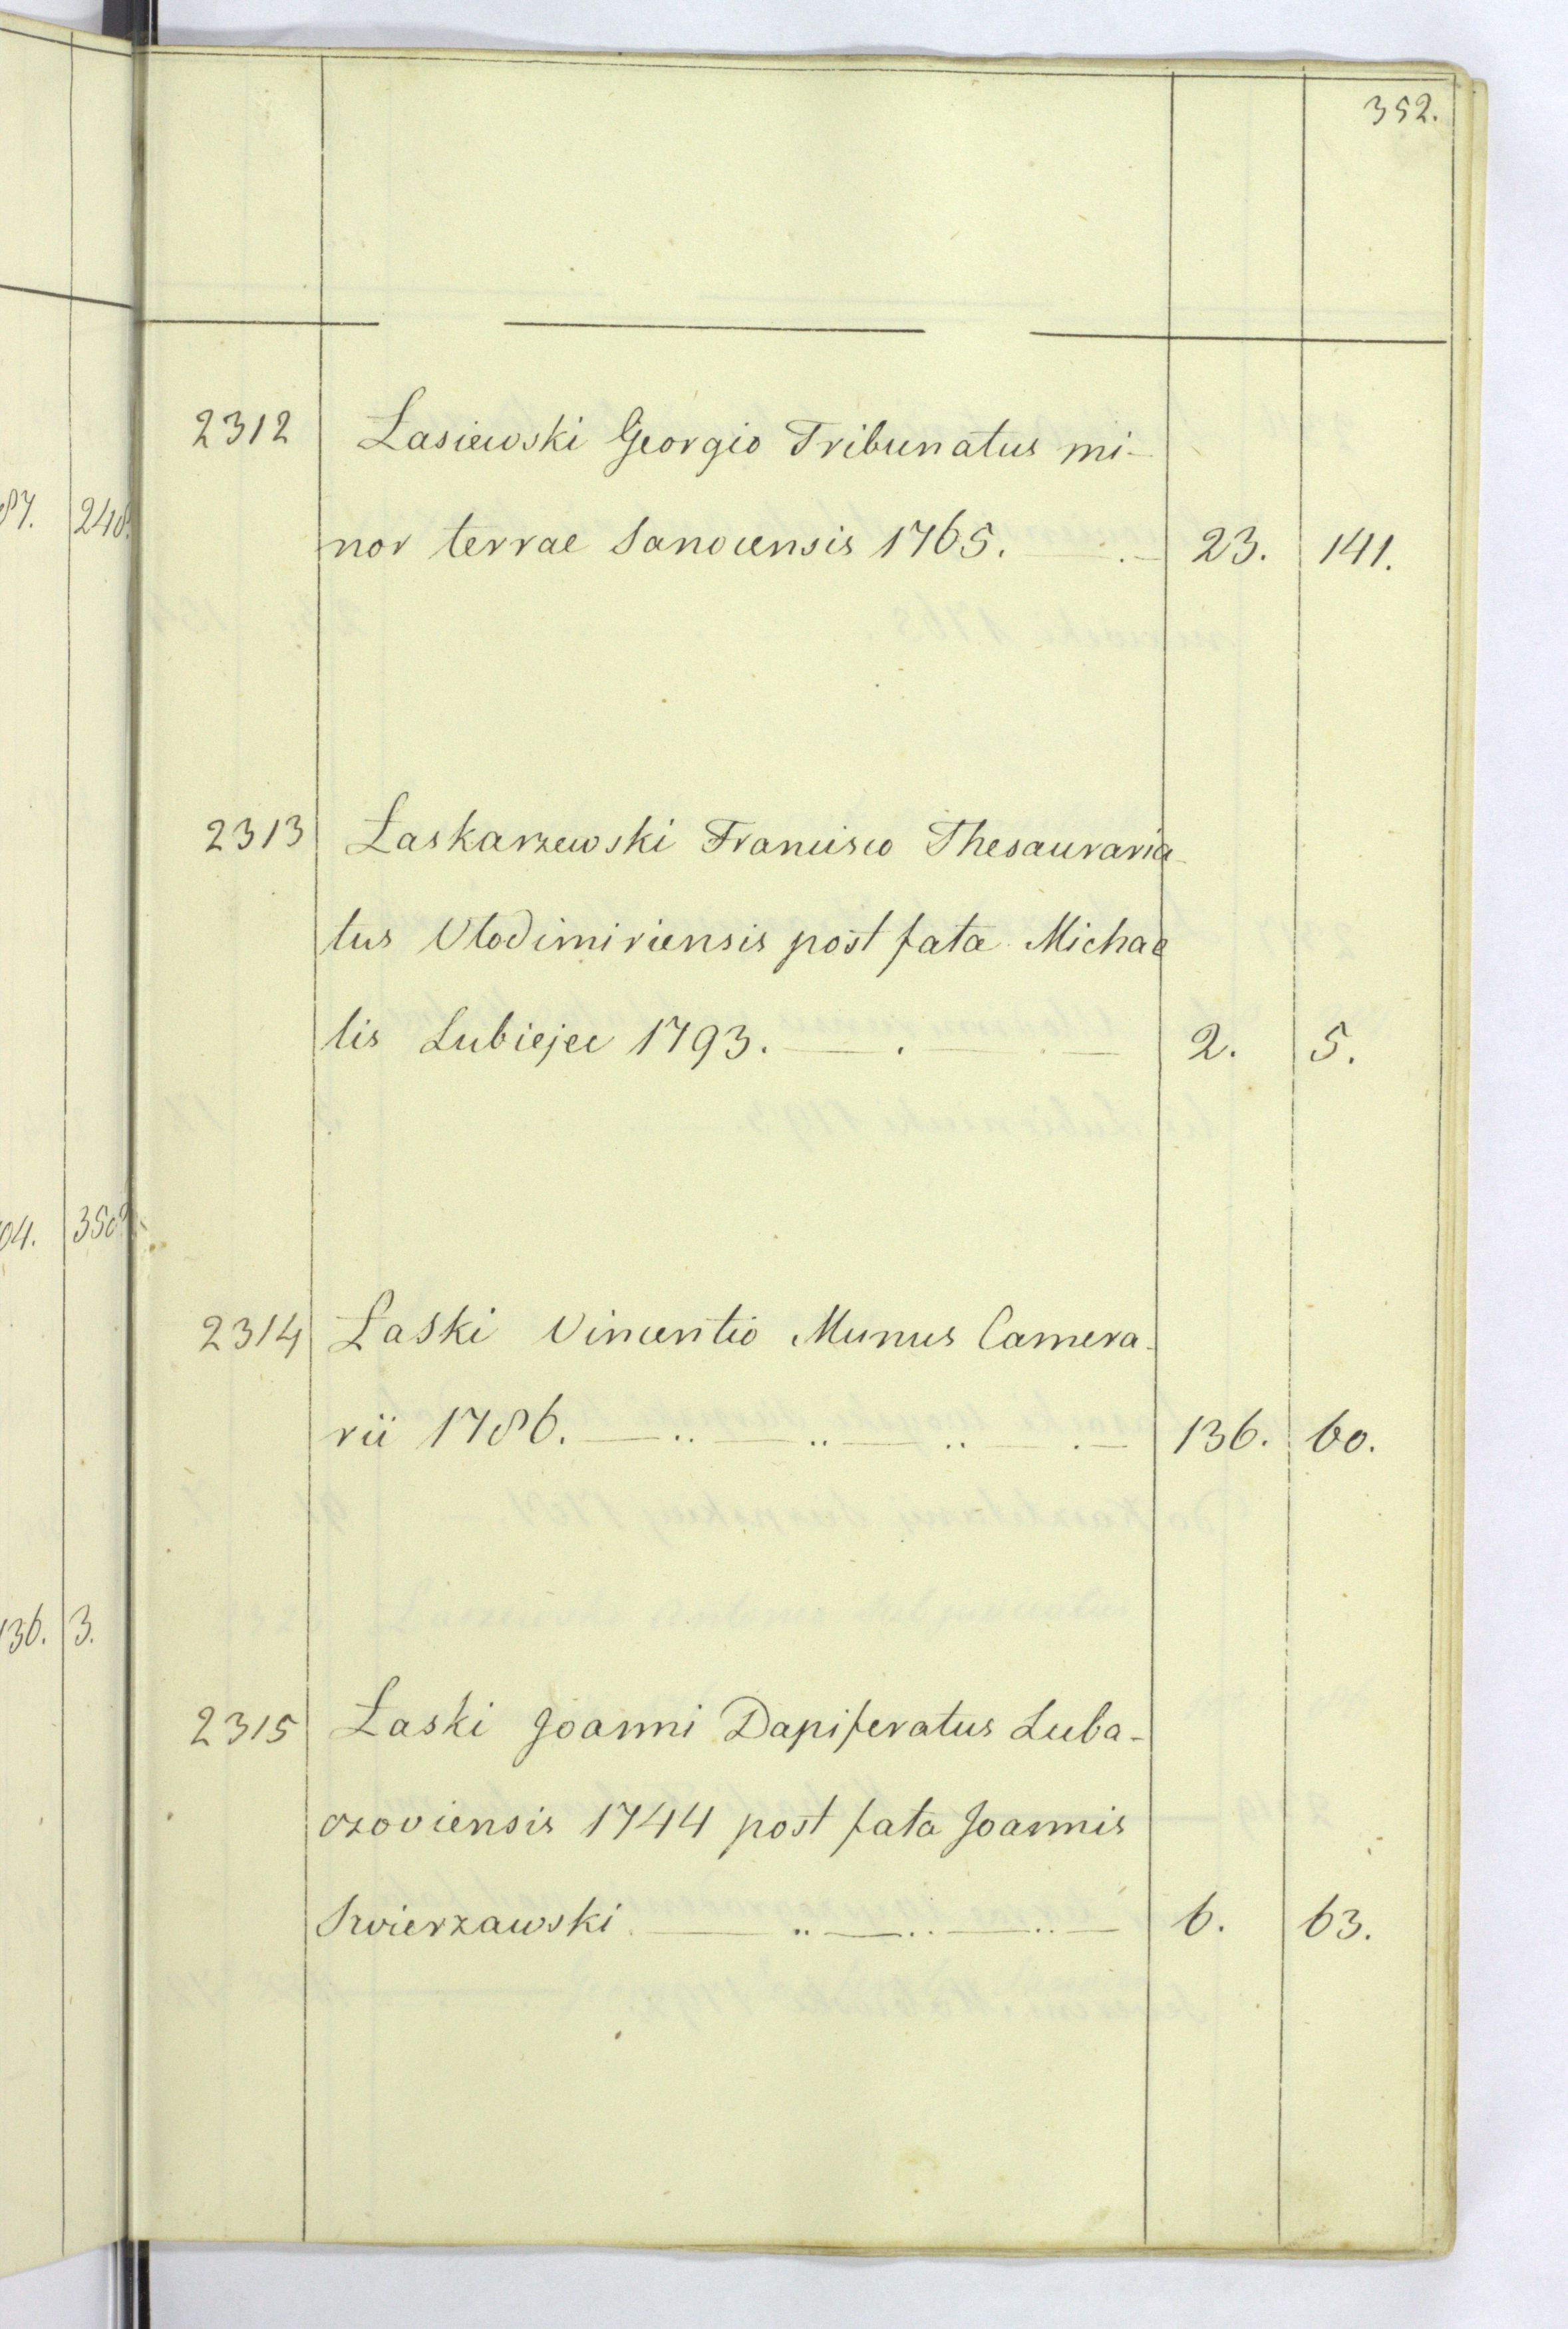 352.
2312 Łasiewski Georgio Tribunatus mi-
nor terrae Sanocensis 1765. 23. 141.
2313 Łaskarzewski Francisco Thesauraria-
tus Vlodimiriensis post fata Michae
lis Lubiejec 1793. 2. 5.
2314 Łaski Vincentio Munus Camera-
rii 1786. 136. 60.
2315 Łaski Joanni Dapiferatus Luba-
czoviensis 1744 post fata Joannis
Swierzawski. 6. 63.
87. 248.
04. 350
136. 3.